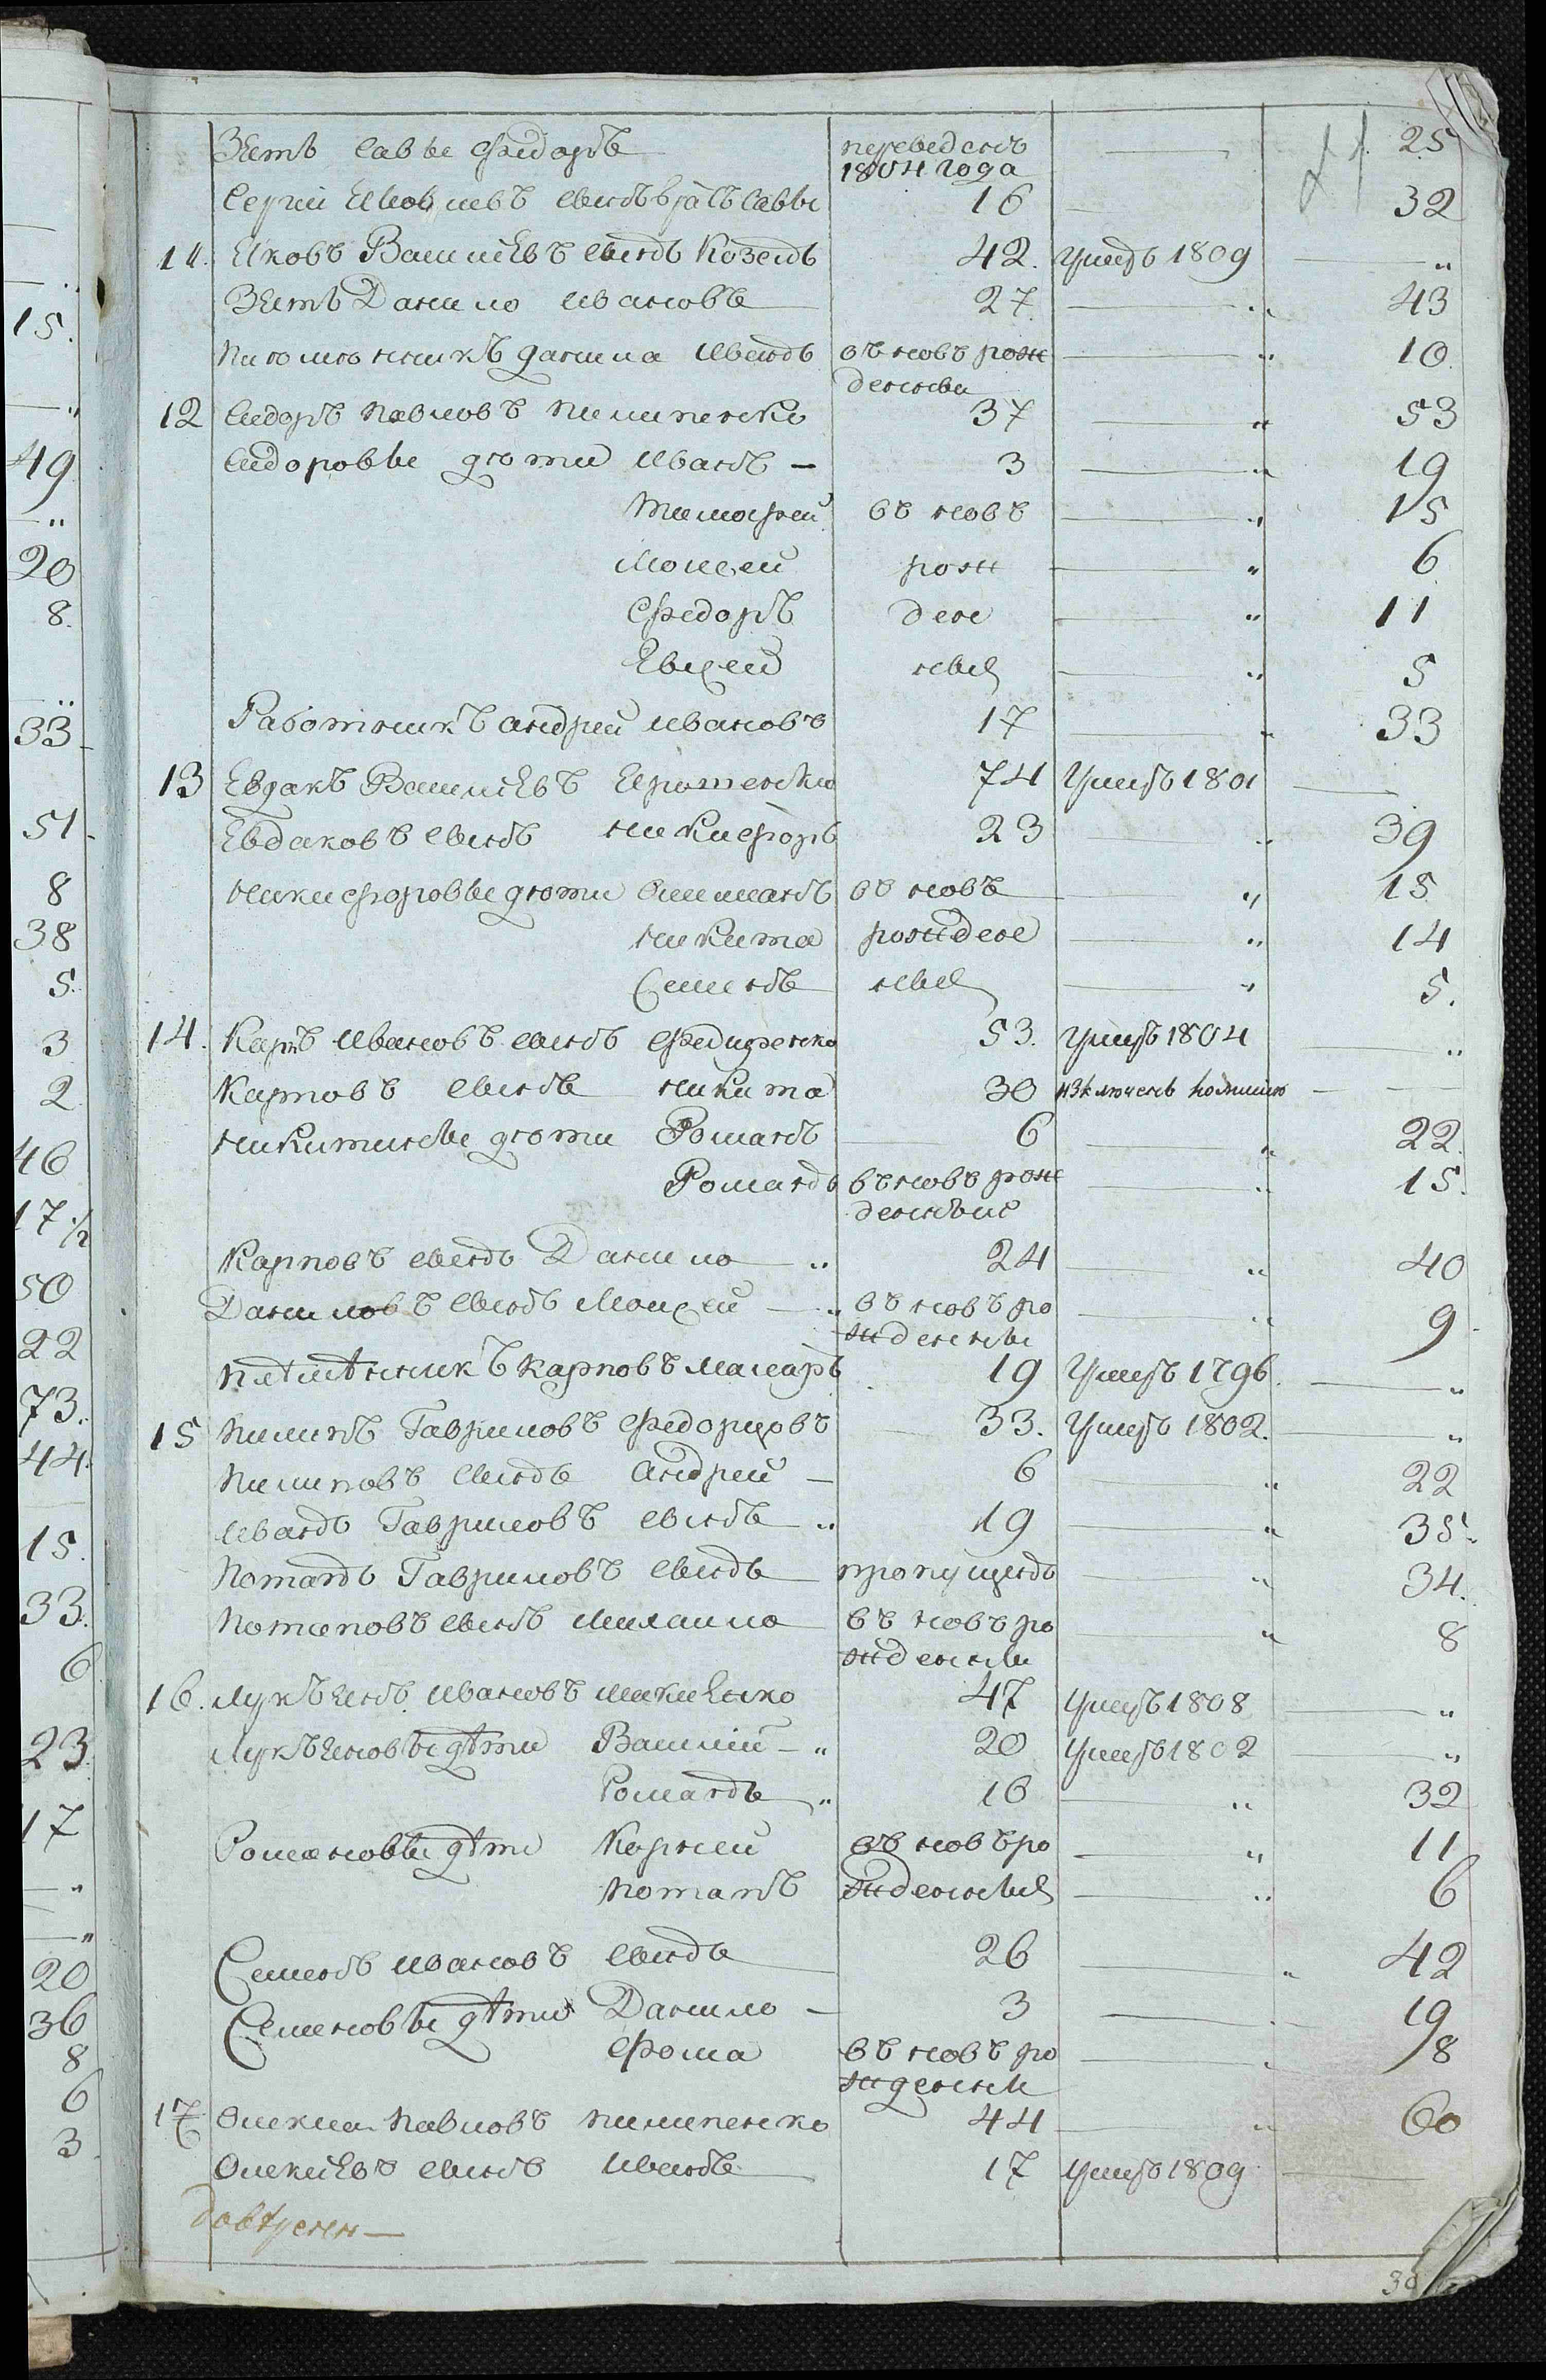 15.
49
20
8.
33
51
8
38
5.
3
2
46
17 1/2
50
22
73.
44.
15.
33.
6
23
17
20
36
8
6
3
Зять Саввы Федоръ переведенъ 25
1804 года
Сергій сынъ братъ Саввы 16 32
11. Яковъ Василіевъ сынъ Козелъ 42. Умеръ 1809 "
Зять Данило Ивановъ 27 " 43
Питомленникъ данила Иванъ въ новъ рож " 10
денный
12 Сидоръ Павловъ Пилипенко 37 " 53
Сидоровы дѣти Иванъ 3 " 19
Тимофей въ новъ " 15
Моисей рож " 6
Федоръ ден " 11
Евсей ныя " 5
Работникъ андрей Ивановъ 17 " 33
13 Евдакъ Василіевъ 74 Умеръ 1801
Евдаковъ сынъ никифоръ 23 " 39
никифоровы дѣти въ новъ " 15
никита рожден " 14
Семенъ ныя " 5.
14. Карпъ Ивановъ сынъ 53. Умеръ 1804 "
Карповъ сынъ никита 30 изключенъ
никитины дѣти Романъ 6 " 22.
Романъ въ новъ рож " 15.
денные
Карповъ сынъ Данило " 24 " 40
Даниловъ сынъ Моисей " въ новъ ро " 9
жденны
Карповъ Макаръ 19 Умеръ 1796 "
15 Пилипъ Гавриловъ Федорцовъ 33. Умеръ 1802. "
Пилиповъ сынъ Андрей 6 " 22
Иванъ Гавриловъ сынъ " 19 " 35.
Потапъ Гавриловъ сынъ пропущенъ " 34.
Потаповъ сынъ Михаило въ новъ ро " 8
жденны
16. Лукъянъ Ивановъ 47 Умеръ 1808 "
Лукъяновы дѣти Василій " 20 Умеръ 1802 "
Романъ " 16 " 32
Романовы дѣти Корней въ новъ ро " 11
Потапъ жденныя " 6
Семенъ Ивановъ сынъ 26 " 42
Семеновы дѣти Данило 3 19
Фома въ новъ ро 8
жденны
17 Олекса Павловъ пилипенко 44 " 60
Олексіевъ сынъ Иванъ 17 умеръ 1809